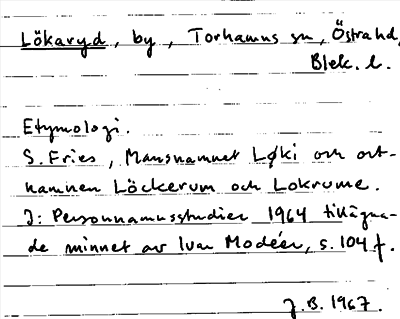 Lökaryd, by, Torhamns sn, Östra hd,
Blek. l.
Etymologi.
S. Fries, Mansnamnet Løki och ort-
namnen Löckerum och Lokrume.
I: Personnamnsstudier 1964 tillägna-
de minnet av Ivar Modéer, s. 104 f.
J.B. 1967.